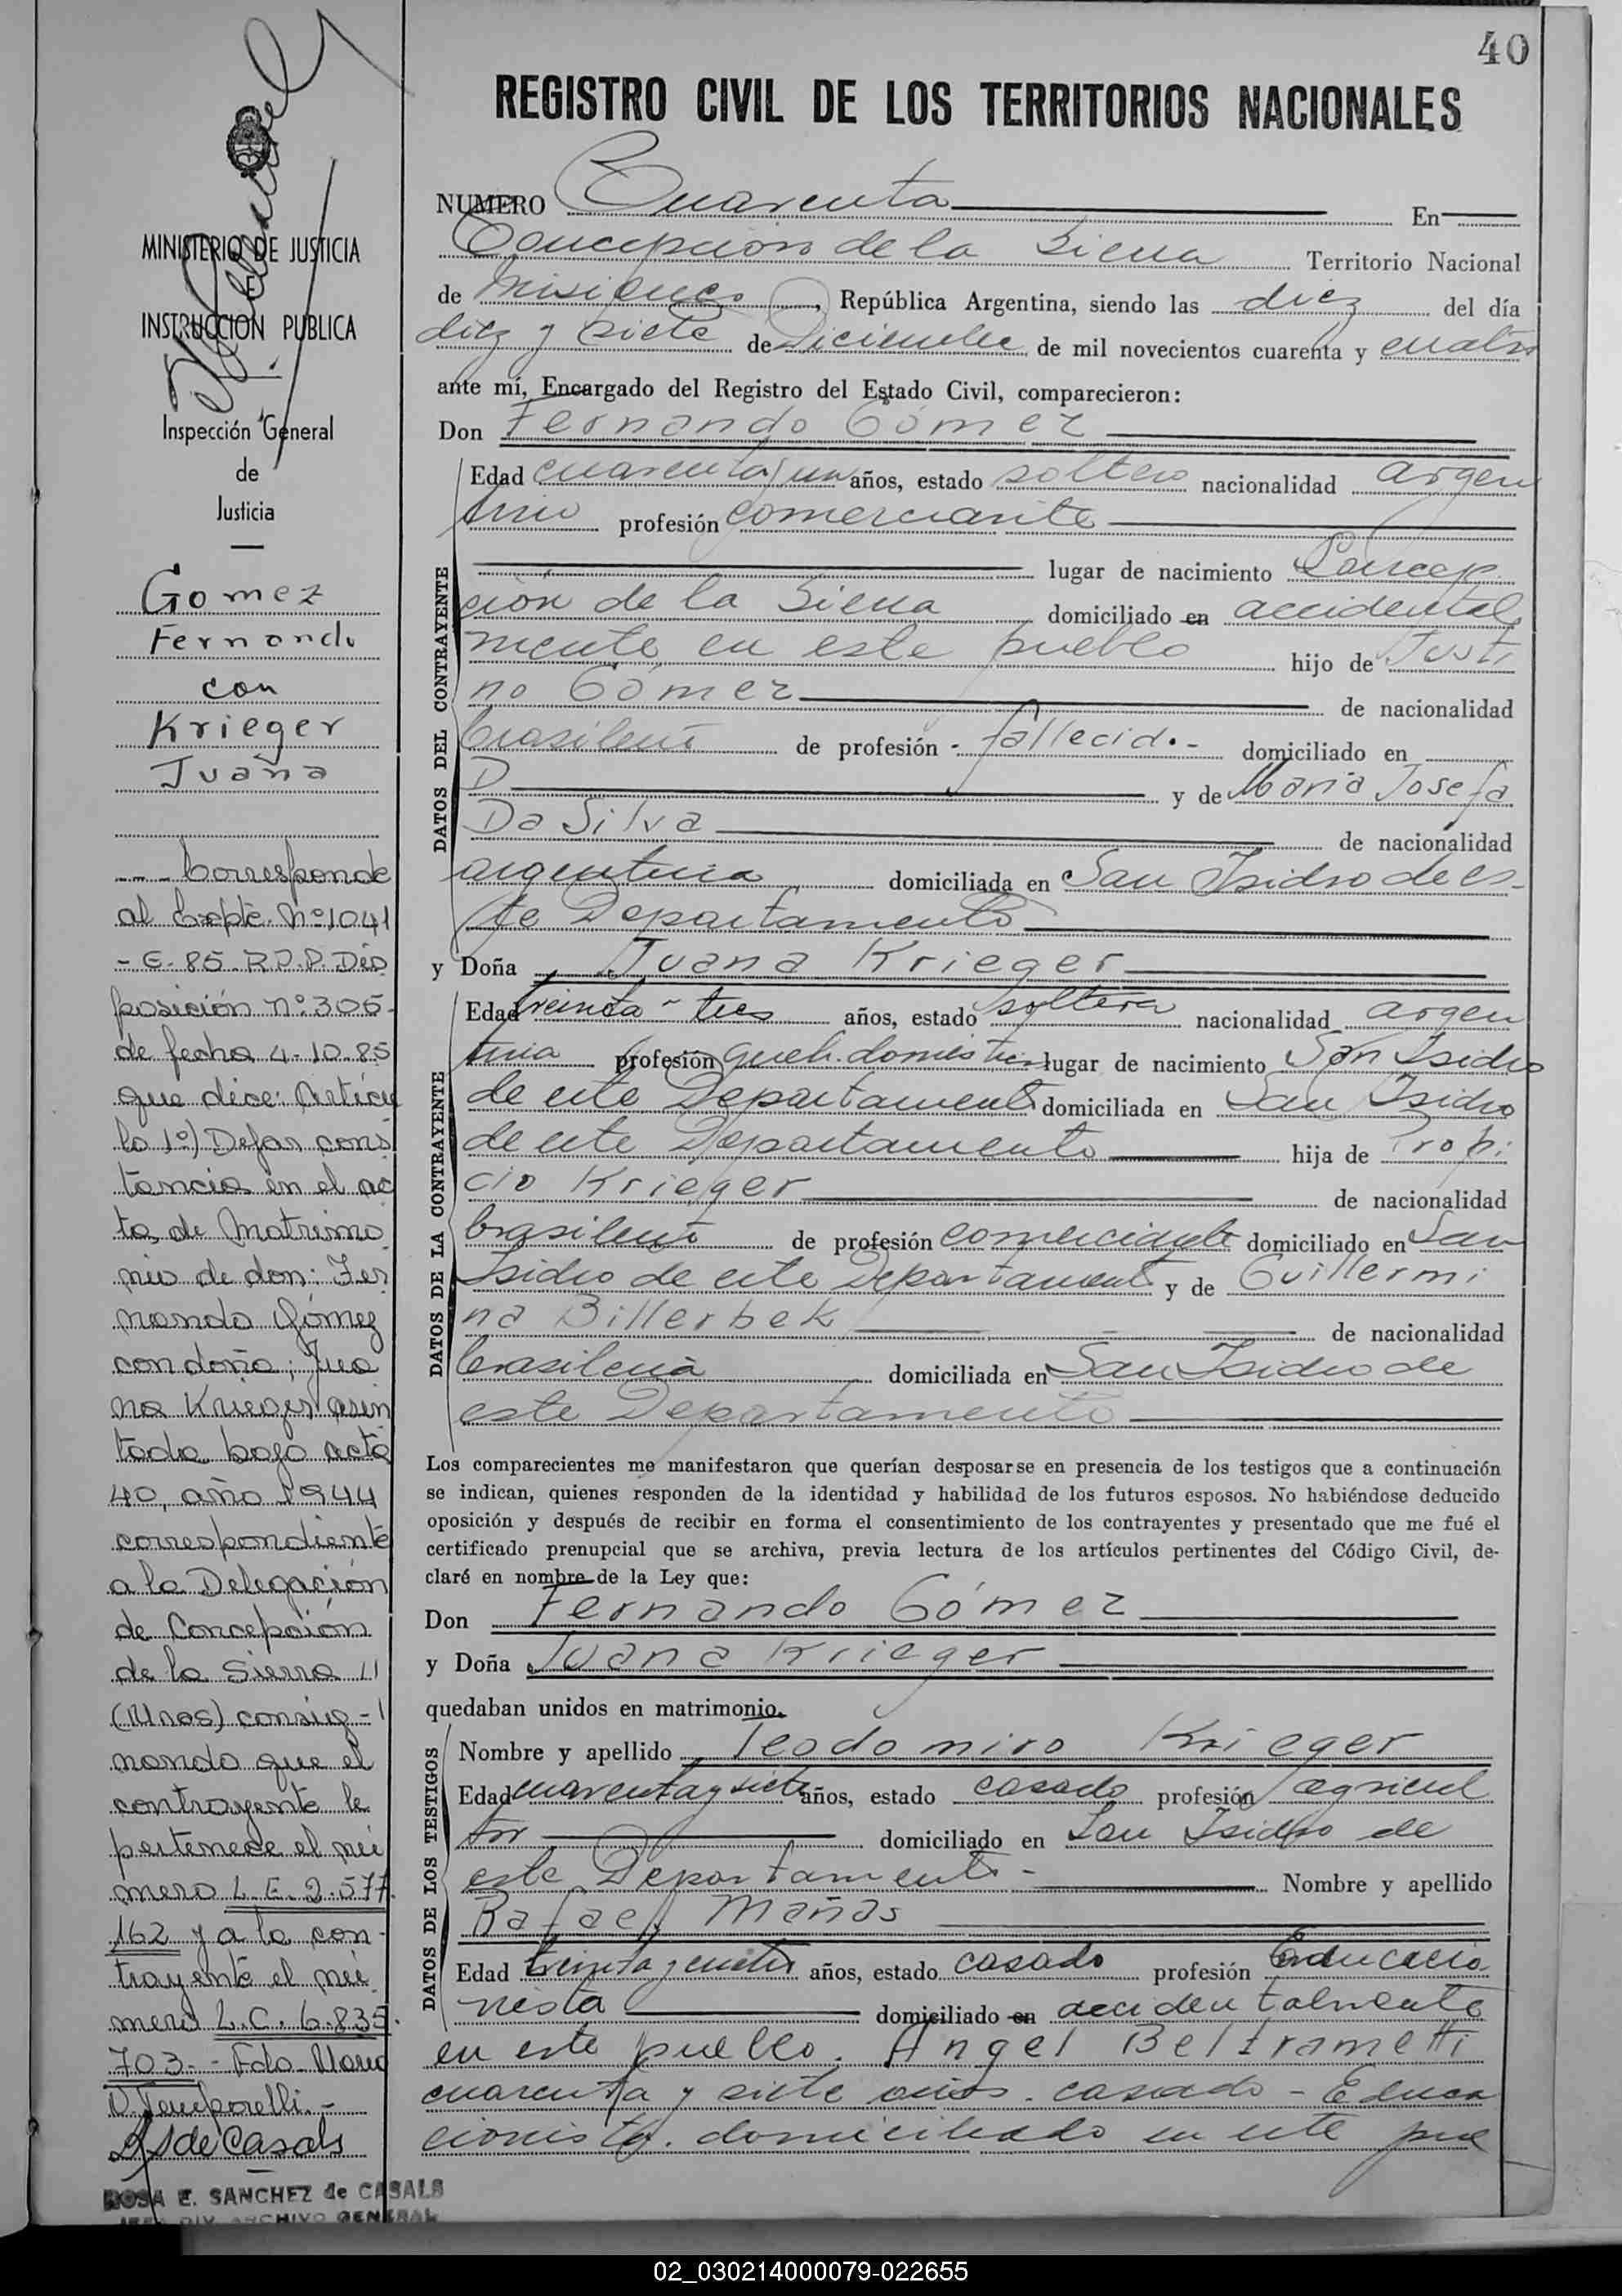 40
REGISTRO CIVIL DE LOS TERRITORIOS NACIONALES
NUMERO Cuarenta En
Concepcion de la Sierra Territorio Nacional
de Misiones, República Argentina, siendo las diez del día
diez y siete de Diciembre de mil novecientos cuarenta y cuatro
ante mí, Encargado del Registro del Estado Civil, comparecieron:
Don Fernando Gómez
DATOS DEL CONTRAYENTE
Edad cuarenta y un años, estado soltero nacionalidad argen
tino profesión comerciante
lugar de nacimiento Concep
ción de la Sierra domiciliado en accidental
mente en este pueblo hijo de Justi
no Gómez de nacionalidad
brasileño de profesión - fallecido - domiciliado en
D y de Maria Josefa
Da Silva de nacionalidad
argentina domiciliada en San Isidro de es-
te Departamento
y Doña Juana Krieger
DATOS DE LA CONTRAYENTE
Edad treinta - tres años, estado soltera nacionalidad argen
tina profesión queh. domésticos lugar de nacimiento San Isidro
de este Departamento domiciliada en San Isidro
de este Departamento hija de Propi
cio Krieger de nacionalidad
brasileño de profesión comerciante domiciliado en San
Isidro de este Departamento y de Guillermi
na Billerbek de nacionalidad
brasileña domiciliada en San Isidro de
este Departamento
Los comparecientes me manifestaron que querían desposarse en presencia de los testigos que a continuación
se indican, quienes responden de la identidad y habilidad de los futuros esposos. No habiéndose deducido
oposición y después de recibir en forma el consentimiento de los contrayentes y presentado que me fué el
certificado prenupcial que se archiva, previa lectura de los artículos pertinentes del Código Civil, de-
claré en nombre de la Ley que:
Don Fernando Gómez
y Doña Juana Krieger
quedaban unidos en matrimonio.
DATOS DE LOS TESTIGOS
Nombre y apellido Teodomiro Krieger
Edad cuarenta y siete años, estado casado profesión agricul
tor domiciliado en San Isidro de
este Departamento - Nombre y apellido
Rafael Mañas
Edad treinta y cuatro años, estado casado profesión Educacio
nista domiciliado en accidentalmente
en este pueblo. Angel Beltrametti
cuarenta y siete años. casado - Educa
cionista. domiciliado en este pue
MINISTERIO DE JUSTICIA
INSTRUCCION PUBLICA
Inspección General
de
Justicia
Gomez
Fernando
con
Krieger
Juana
--- Corresponde
al Expte. Nº 1041
- E. 85. R.P.P. Dis
posición nº 305-
de fecha 4-10-85
que dice: Artícu
lo 1º) Dejar cons
tancia en el ac
ta de Matrimo
nio de don: Fer
nando Gómez
con doña; Jua
na Krieger asen
tada bajo acta
40, año 1944
correspondiente
a la Delegación
de Concepción
de la Sierra
(Mnes) consig-
nando que el
contrayente le
pertenece el nú
mero L.E. 2.577.
162 y a la con-
trayente el nú
mero L.C. 6.835.
703.- Fdo. Mario
D. Temporelli.-
RSdeCasals
ROSA E. SANCHEZ de CASALS
JEFE DIV. ARCHIVO GENERAL
02_030214000079-022655